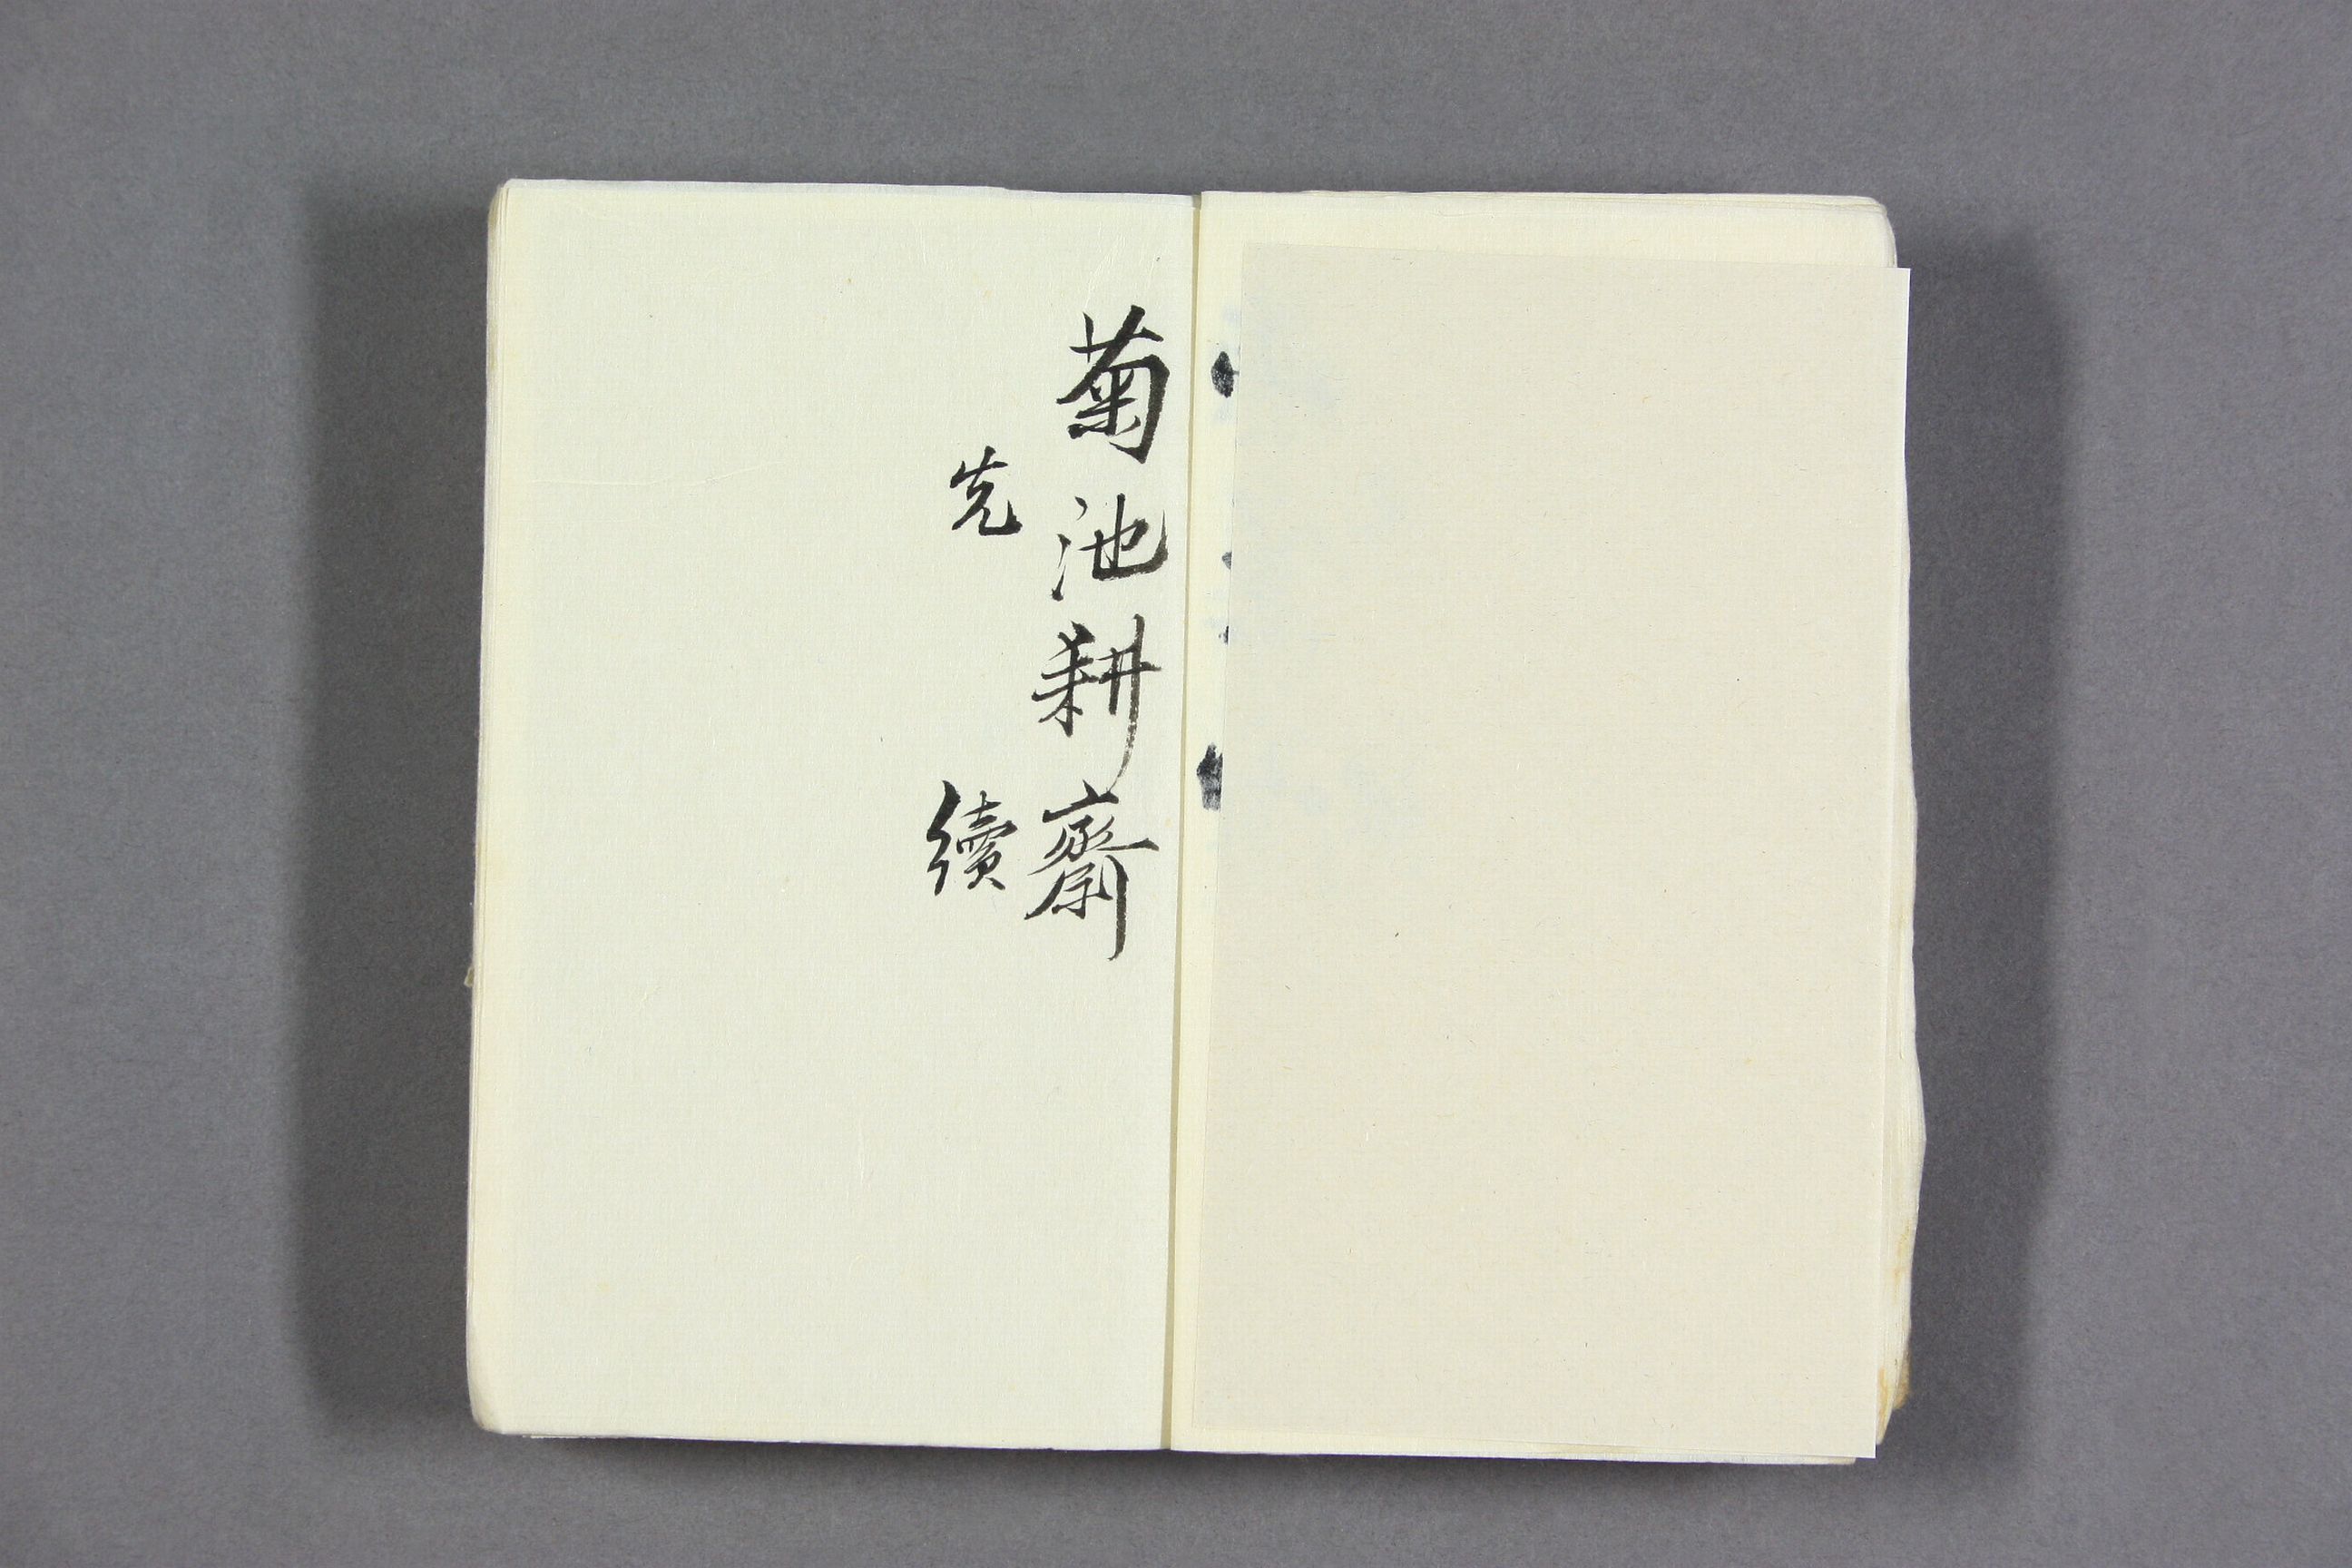 菊池耕齋
先　續